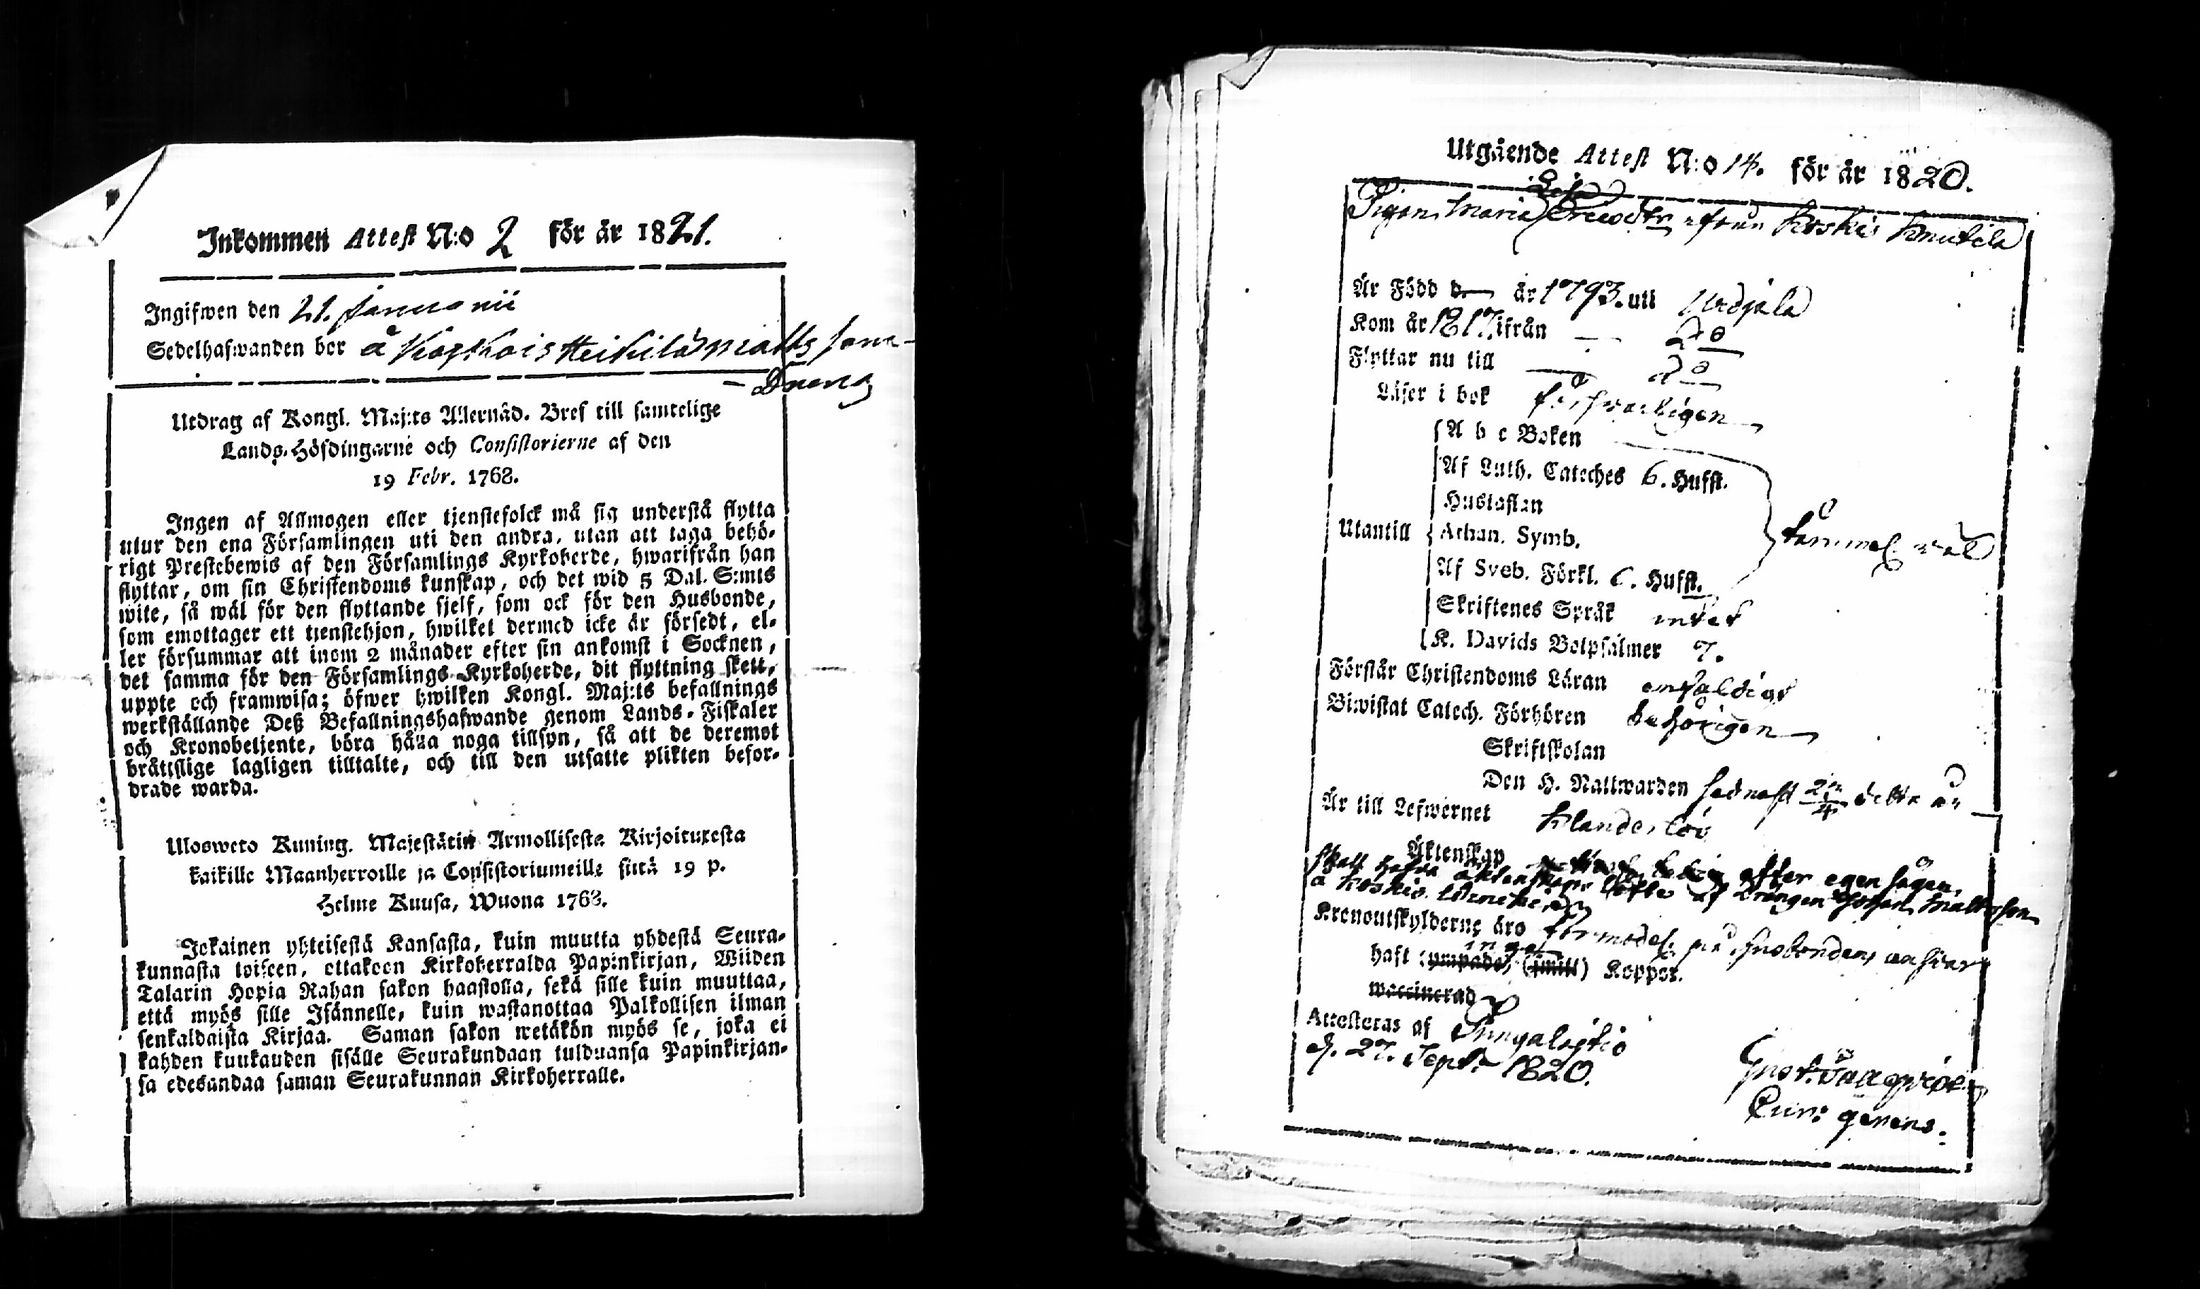 Inkommen Attest N:o 2 för år 1821.
Ingifwen den 21. Januarii
Sedelhafwanden bor å Heikilä Matts
Dreng
Utdrag af Kongl. Maj:ts Allernåd. Bref till samtelige
Lands-Höfdingarne och Consistorierne af den
19 Febr. 1768.
Ingen af Allmogen eller tjenstefolck må sig understå flytta
utur den ena Församlingen uti den andra, utan att taga behö-
rigt Prestebewis af den Församlings Kyrkoherde, hwarifrån han
flyttar, om sin Christendoms kunskap, och det wid 5 Dal. S:mts
wite, så wäl för den flyttande sjelf, som ock för den Husbonde,
som emottager ett tjenstehjon, hwilket dermed icke är försedt, el-
ler försummar att inom 2 månader efter sin ankomst i Socknen,
det samma för den Församlings Kyrkoherde, dit flyttning skett,
uppte och framwisa; öfwer hwilken Kongl. Maj:ts befallnings
werkställande Deß Befallningshafwande genom Lands-Fiskaler
och Kronobetjente, böra hålla noga tillsyn, så att de deremot
bråttslige lagligen tilltalte, och till den utsatte plikten befor-
drade warda.
Ulosweto Kuning. Majestätin Armollisesta Kirjoituxesta
kaikille Maanherroille ja Consistoriumeille siitä 19 p.
Helme Kuusa, Wuona 1768.
Jokainen yhteisestä Kansasta, kuin muutta yhdestä Seura-
kunnasta toiseen, ottakoon Kirkoherralda Papinkirjan, Wiiden
Talarin Hopia Rahan sakon haastolla, sekä sille kuin muuttaa,
että myös sille Isännelle, kuin wastanottaa Palkollisen ilman
senkaldaista Kirjaa. Saman sakon wetäkön myös se, joka ei
kahden kuukauden sisälle Seurakundaan tulduansa Papinkirjan-
sa edesandaa saman Seurakunnan Kirkoherralle.
Utgående Attest N:o 14. för år 1820.
Pigan Maria ifrån Koskis Knutila
Är Född d. — år 1793. uti Urdjala
Kom år 1817 ifrån — do
Flyttar nu till — do
Läser i bok förswarligen
A b c Boken
Af Luth. Cateches 6. Hufst.
Hustaflan
Utantill Athan. Symb. tämmel. wäl
Af Sveb. Förkl. 6. Hufst.
Skriftenes Språk intet
K. Davids Botpsalmer 7.
Förstår Christendoms Läran enfaldigt
Biwistat Catech. Förhören behörigen
Skriftskolan
Den H. Nattwarden sednast detta år
Är till Lefwernet klanderlös
Äktenskap efter egen sägen,
skall hafva äktenskaps löfte af Drängen Johan Mattsson
å Koskis
Kronoutskylderne äro förmodel. på Husbondens answar
haft ympade, (inga) Koppor.
waccinerad
Attesteras af
d. 27. Sept. 1820.
Cur: gerens.